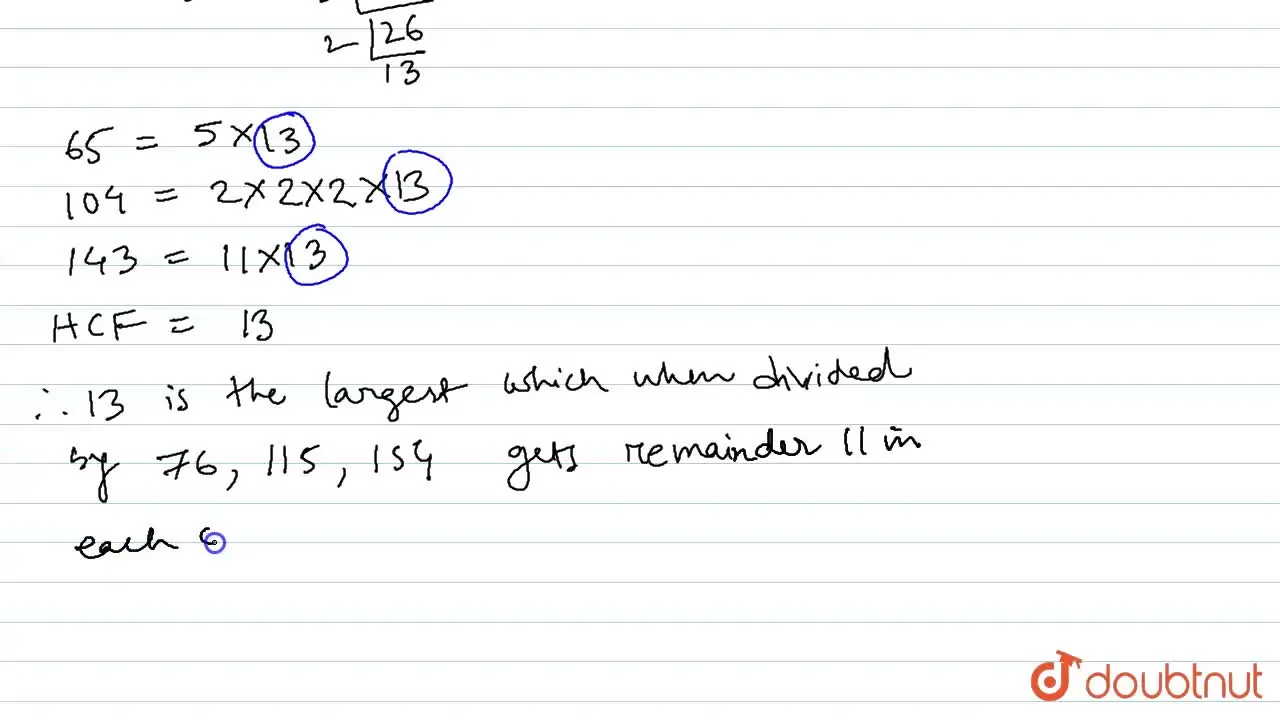 2 26
13
65 = 5 × 13
104 = 2 × 2 × 2 × 13
143 = 11 × 13
HCF = 13
∴ 13 is the largest which when divided
by 76, 115, 154 gets remainder 11 in
each
doubtnut